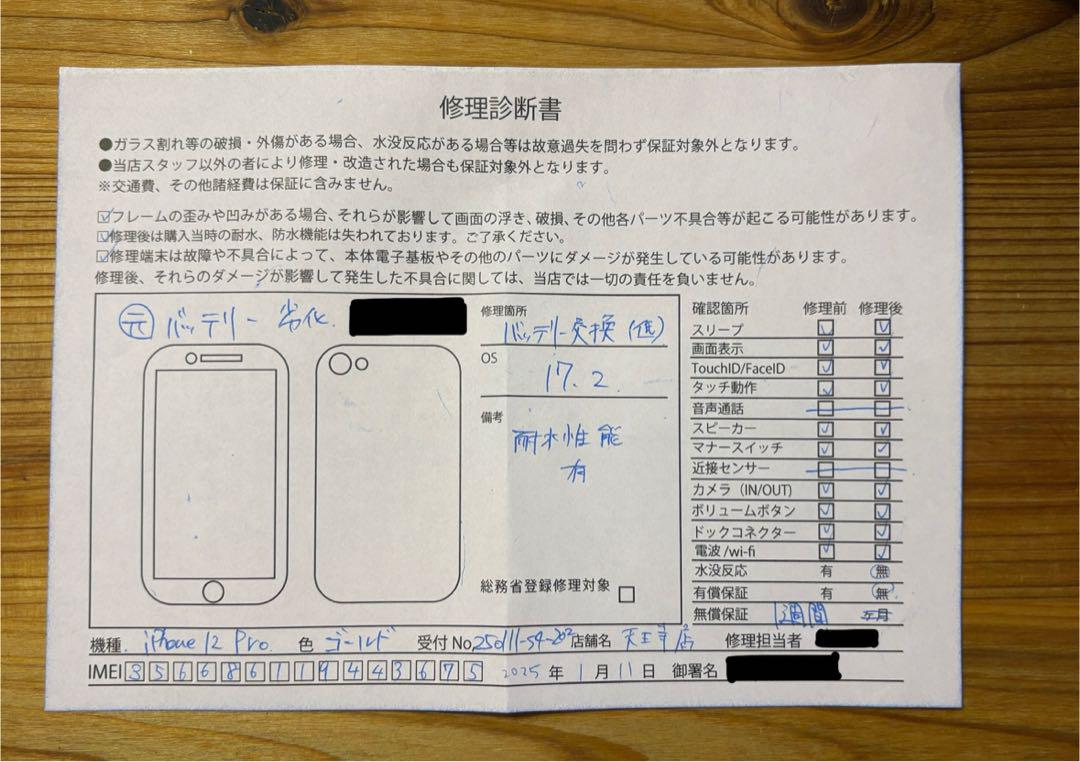 修理診断書
●ガラス割れ等の破損・外傷がある場合、水没反応がある場合等は故意過失を問わず保証対象外となります。
●当店スタッフ以外の者により修理・改造された場合も保証対象外となります。
※交通費、その他諸経費は保証に含みません。
☑フレームの歪みや凹みがある場合、それらが影響して画面の浮き、破損、その他各パーツ不具合等が起こる可能性があります。
☑修理後は購入当時の耐水、防水機能は失われております。ご了承ください。
☑修理端末は故障や不具合によって、本体電子基板やその他のパーツにダメージが発生している可能性があります。
修理後、それらのダメージが影響して発生した不具合に関しては、当店では一切の責任を負いません。
元 バッテリー 劣化
修理箇所
バッテリー交換
OS
17.2
備考
耐水性能
有
総務省登録修理対象 □
確認箇所 修理前 修理後
スリープ ☑ ☑
画面表示 ☑ ☑
TouchID/FaceID ☑ ☑
タッチ動作 ☑ ☑
音声通話 □ □
スピーカー ☑ ☑
マナースイッチ ☑ ☑
近接センサー □ □
カメラ（IN/OUT） ☑ ☑
ボリュームボタン ☑ ☑
ドックコネクター ☑ ☑
電波/wi-fi ☑ ☑
水没反応 有 無
有償保証 有 無
無償保証 1週間 ヶ月
機種 iPhone 12 Pro 色 ゴールド 受付No.250111-54-202 店舗名 天王寺店 修理担当者
IMEI 356686119443675 2025年 1月 11日 御署名